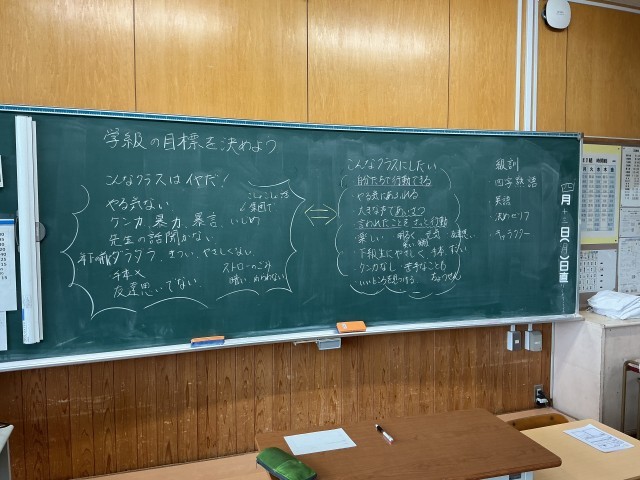 学級の目標を決めよう
こんなクラスはイヤだ!
やる気ない
ケンカ、暴力、暴言、いじめ
先生の話聞かない
ダラダラ、きつい、やさしくない
手本×
友達思いでない
集団で
ストローのごみ
暗い
こんなクラスにしたい
自分たちで行動できる
やる気にあふれる
大きな声であいさつ
言われたことをさっと行動
楽しい 明るく 元気
下級生にやさしく 手本
ケンカなし 苦手なことも
いいところを見つける
級訓
四字熟語
英語
決めゼリフ
キャラクター
四月十三日(月)日直